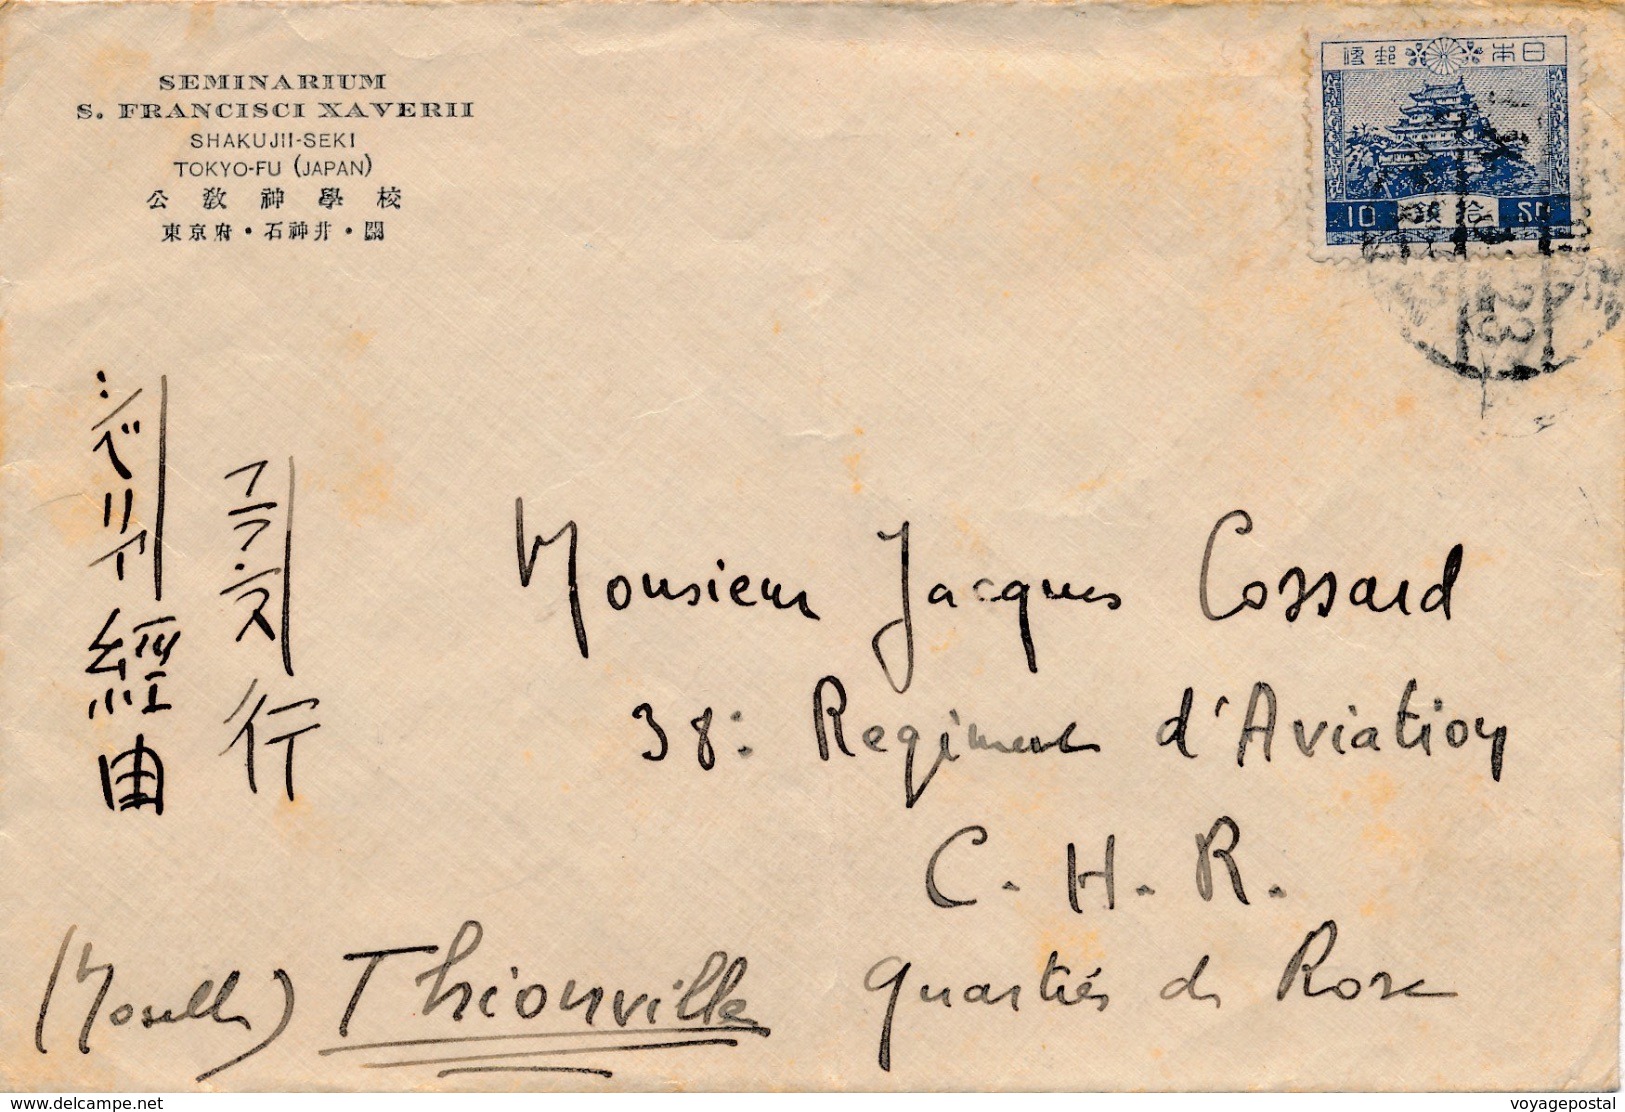 SEMINARIUM
S. FRANCISCI XAVERII
SHAKUJII-SEKI
TOKYO-FU (JAPAN)
公教神學校
東京府・石神井・關
日本郵便
10 錢拾 SN
シベリア經由
フランス行
Monsieur Jacques Cossard
38e Regiment d'Aviation
C. H. R.
Quartiés de Rose
(Moselle) Thionville
www.delcampe.net
voyagepostal